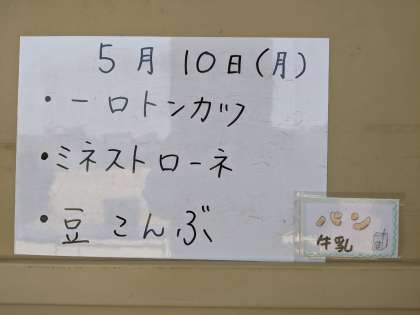 5月10日(月)
・一口トンカツ
・ミネストローネ
・豆こんぶ
パン
牛乳